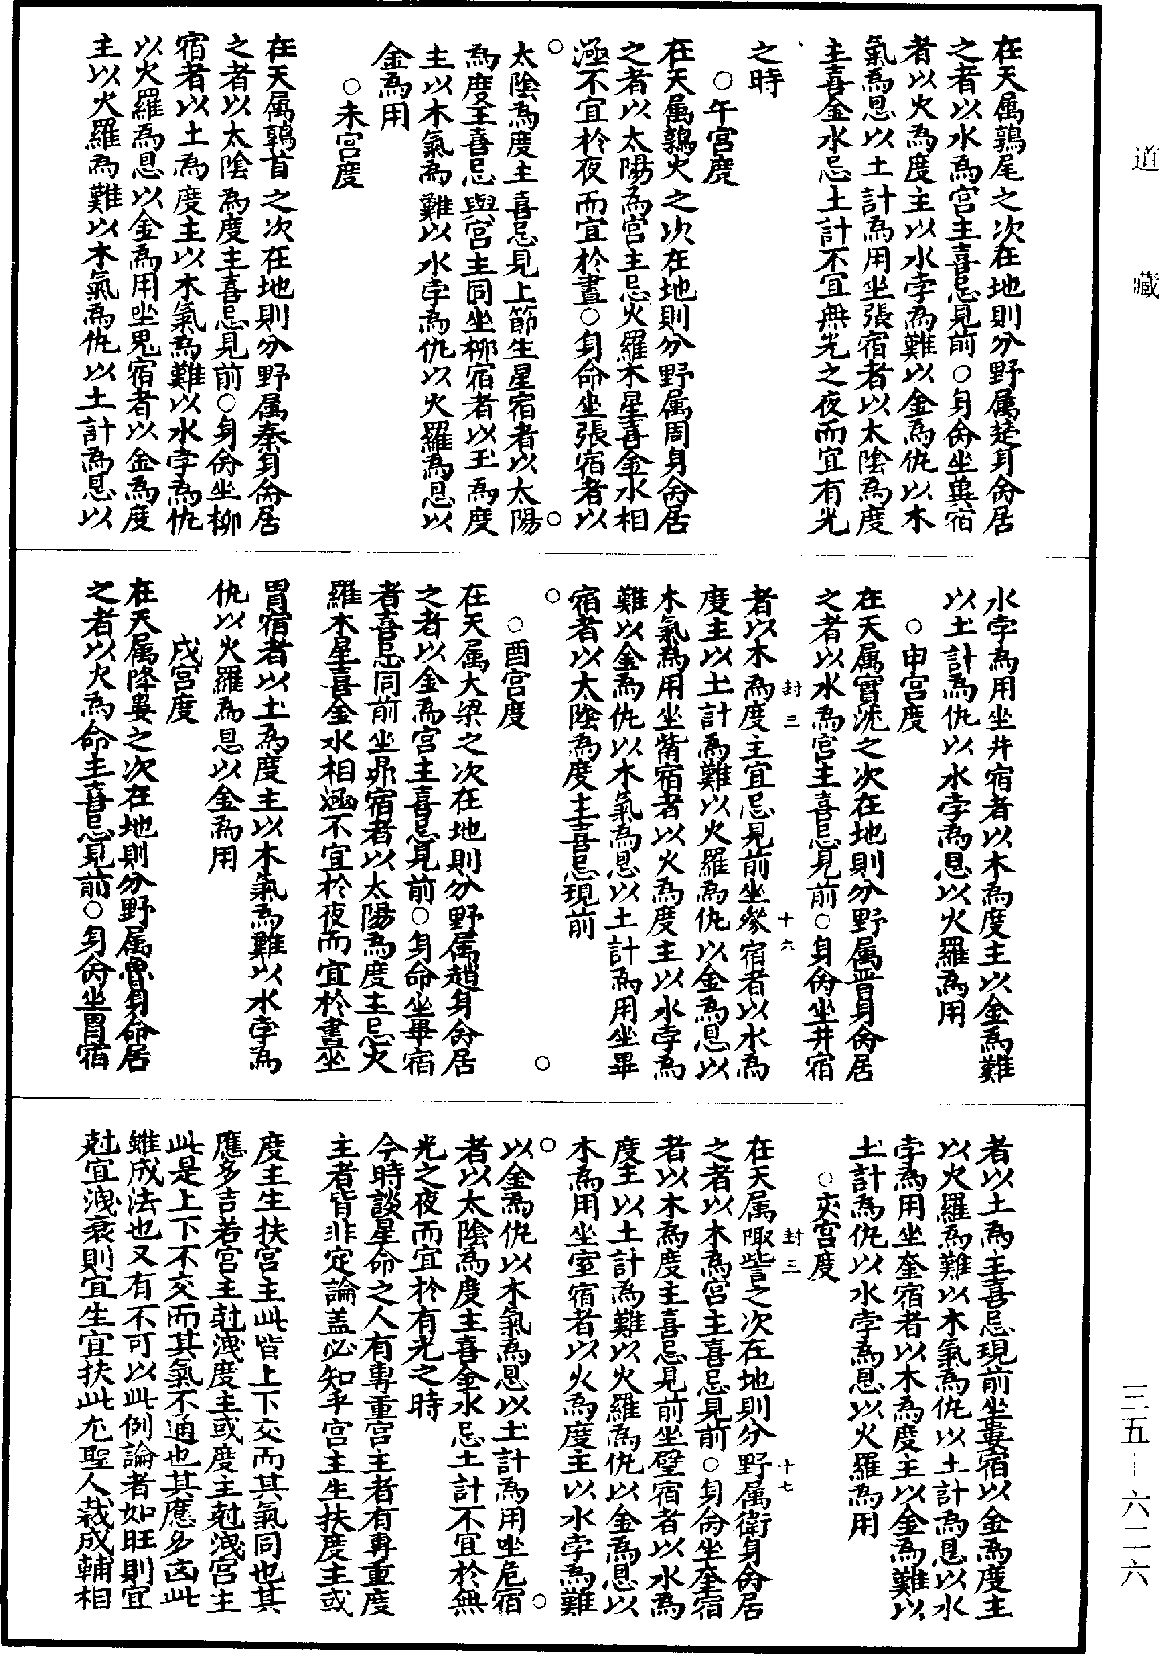 在天属鶉尾之次在地則分野属楚身命居
之者以水為宮主喜忌見前○身命坐翼宿
者以火為度主以水孛為難以金為仇以木
氣為恩以土計為用坐張宿者以太陰為度
主喜金水忌土計不宜無光之夜而宜有光
之時
○午宮度
在天属鶉火之次在地則分野属周身命居
之者以太陽為宮主忌火羅木星喜金水相
涵不宜於夜而宜於晝○身命坐張宿者以
太陰為度主喜忌見上節坐星宿者以太陽
為度主喜忌與宮主同坐柳宿者以土為度
主以木氣為難以水孛為仇以火羅為恩以
金為用
○未宮度
在天属鶉首之次在地則分野属秦身命居
之者以太陰為度主喜忌見前○身命坐柳
宿者以土為度主以木氣為難以水孛為仇
以火羅為恩以金為用坐鬼宿者以金為度
主以火羅為難以木氣為仇以土計為恩以
水孛為用坐井宿者以木為度主以金為難
以土計為仇以水孛為恩以火羅為用
○申宮度
在天属實沈之次在地則分野属晋身命居
之者以水為宮主喜忌見前○身命坐井宿
者以木為度主宜忌見前坐參宿者以水為
度主以土計為難以火羅為仇以金為恩以
木氣為用坐觜宿者以火為度主以水孛為
難以金為仇以木氣為恩以土計為用坐畢
宿者以太陰為度主喜忌現前
○酉宮度
在天属大梁之次在地則分野属趙身命居
之者以金為宮主喜忌見前○身命坐畢宿
者喜忌同前坐昴宿者以太陽為度主忌火
羅木星喜金水相涵不宜於夜而宜於晝坐
胃宿者以土為度主以木氣為難以水孛為
仇以火羅為恩以金為用
戌宮度
在天属降婁之次在地則分野属魯身命居
之者以火為命主喜忌見前○身命坐胃宿
者以土為主喜忌現前坐婁宿以金為度主
以火羅為難以木氣為仇以土計為恩以水
孛為用坐奎宿者以木為度主以金為難以
土計為仇以水孛為恩以火羅為用
○亥宮度
在天属陬訾之次在地則分野属衛身命居
之者以木為宮主喜忌見前○身命坐奎宿
者以木為度主喜忌見前坐壁宿者以水為
度主以土計為難以火羅為仇以金為恩以
木為用坐室宿者以火為度主以水孛為難
以金為仇以木氣為恩以土計為用坐危宿
者以太陰為度主喜金水忌土計不宜於無
光之夜而宜於有光之時
今時談星命之人有專重宮主者有專重度
主者皆非定論盖必知乎宮主生扶度主或
度主生扶宮主此皆上下交而其氣同也其
應多吉若宮主尅洩度主或度主尅洩宮主
此是上下不交而其氣不通也其應多凶此
雖成法也又有不可以此例論者如旺則宜
尅宜洩衰則宜生宜扶此尤聖人裁成輔相
封三
十六
封三
十七
道藏
三五—六二六